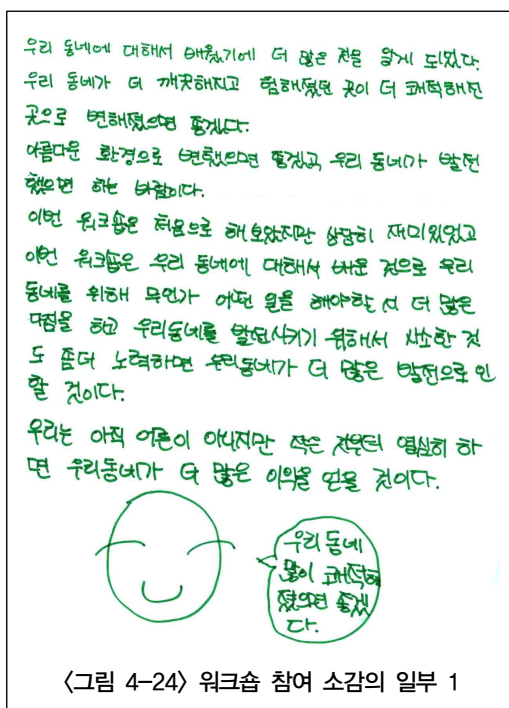 우리 동네에 대해서 배웠기에 더 많은 것을 알게 되었다.
우리 동네가 더 깨끗해지고 험해졌던 곳이 더 쾌적해진
곳으로 변해졌으면 좋겠다.
아름다운 환경으로 변했으면 좋겠고, 우리 동네가 발전
했으면 하는 바람이다.
이번 워크숍은 처음으로 해보았지만 상당히 재미있었고
이번 워크숍은 우리 동네에 대해서 배운 것으로 우리
동네를 위해 무언가 어떤 일을 해야할 지 더 많은
다짐을 하고 우리동네를 발전시키기 위해서 사소한 것
도 좀더 노력하면 우리동네가 더 많은 발전으로 인
할 것이다.
우리는 아직 어른이 아니지만 작은 것부터 열심히 하
면 우리동네가 더 많은 이익을 얻을 것이다.
우리동네
많이 쾌적해
졌으면 좋겠
다.
〈그림 4-24〉 워크숍 참여 소감의 일부 1